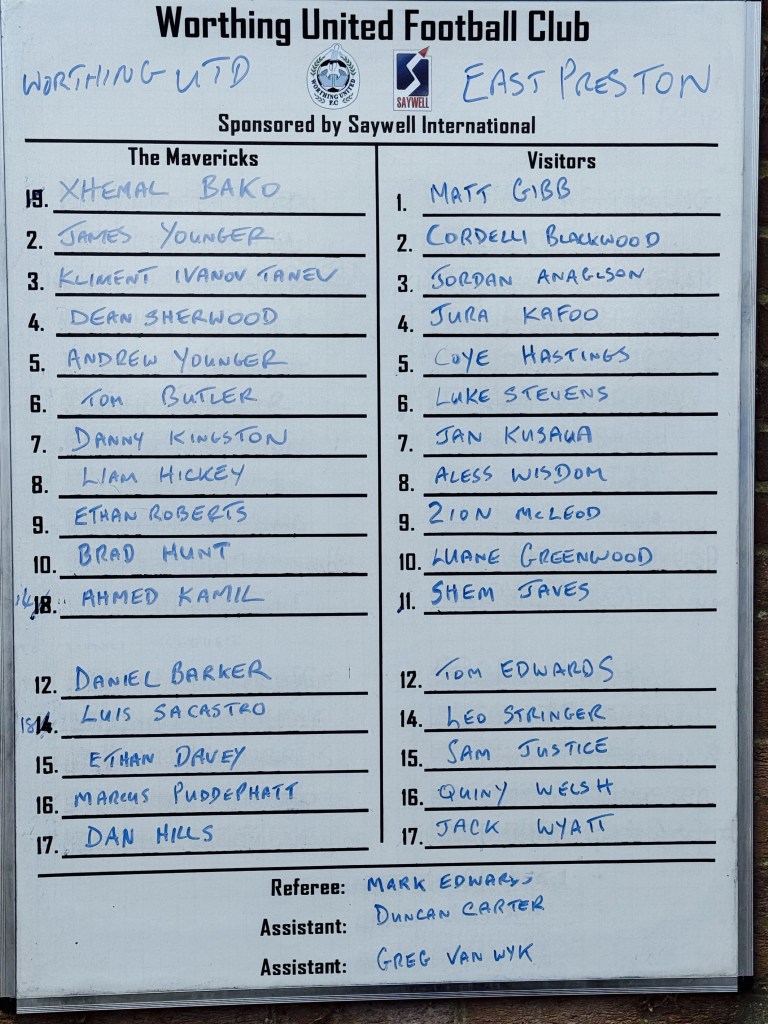 Worthing United Football Club
WORTHING UTD
WORTHING UNITED F.C
SAYWELL
EAST PRESTON
Sponsored by Saywell International
The Mavericks
19. XHEMAL BAKO
2. JAMES YOUNGER
3. KLIMENT IVANOV TANEV
4. DEAN SHERWOOD
5. ANDREW YOUNGER
6. TOM BUTLER
7. DANNY KINGSTON
8. LIAM HICKEY
9. ETHAN ROBERTS
10. BRAD HUNT
18. AHMED KAMIL
12. DANIEL BARKER
14. LUIS SACASTRO
15. ETHAN DAVEY
16. MARCUS PUDDEPHATT
17. DAN HILLS
Visitors
1. MATT GIBB
2. CORDELLI BLACKWOOD
3. JORDAN
4. JURA KAFOO
5. COYE HASTINGS
6. LUKE STEVENS
7. JAN
8. ALESS WISDOM
9. ZION McLEOD
10. LUANE GREENWOOD
11. SHEM JAVES
12. TOM EDWARDS
14. LEO STRINGER
15. SAM JUSTICE
16. QUINY WELSH
17. JACK WYATT
Referee: MARK EDWARDS
Assistant: DUNCAN CARTER
Assistant: GREG VAN WYK